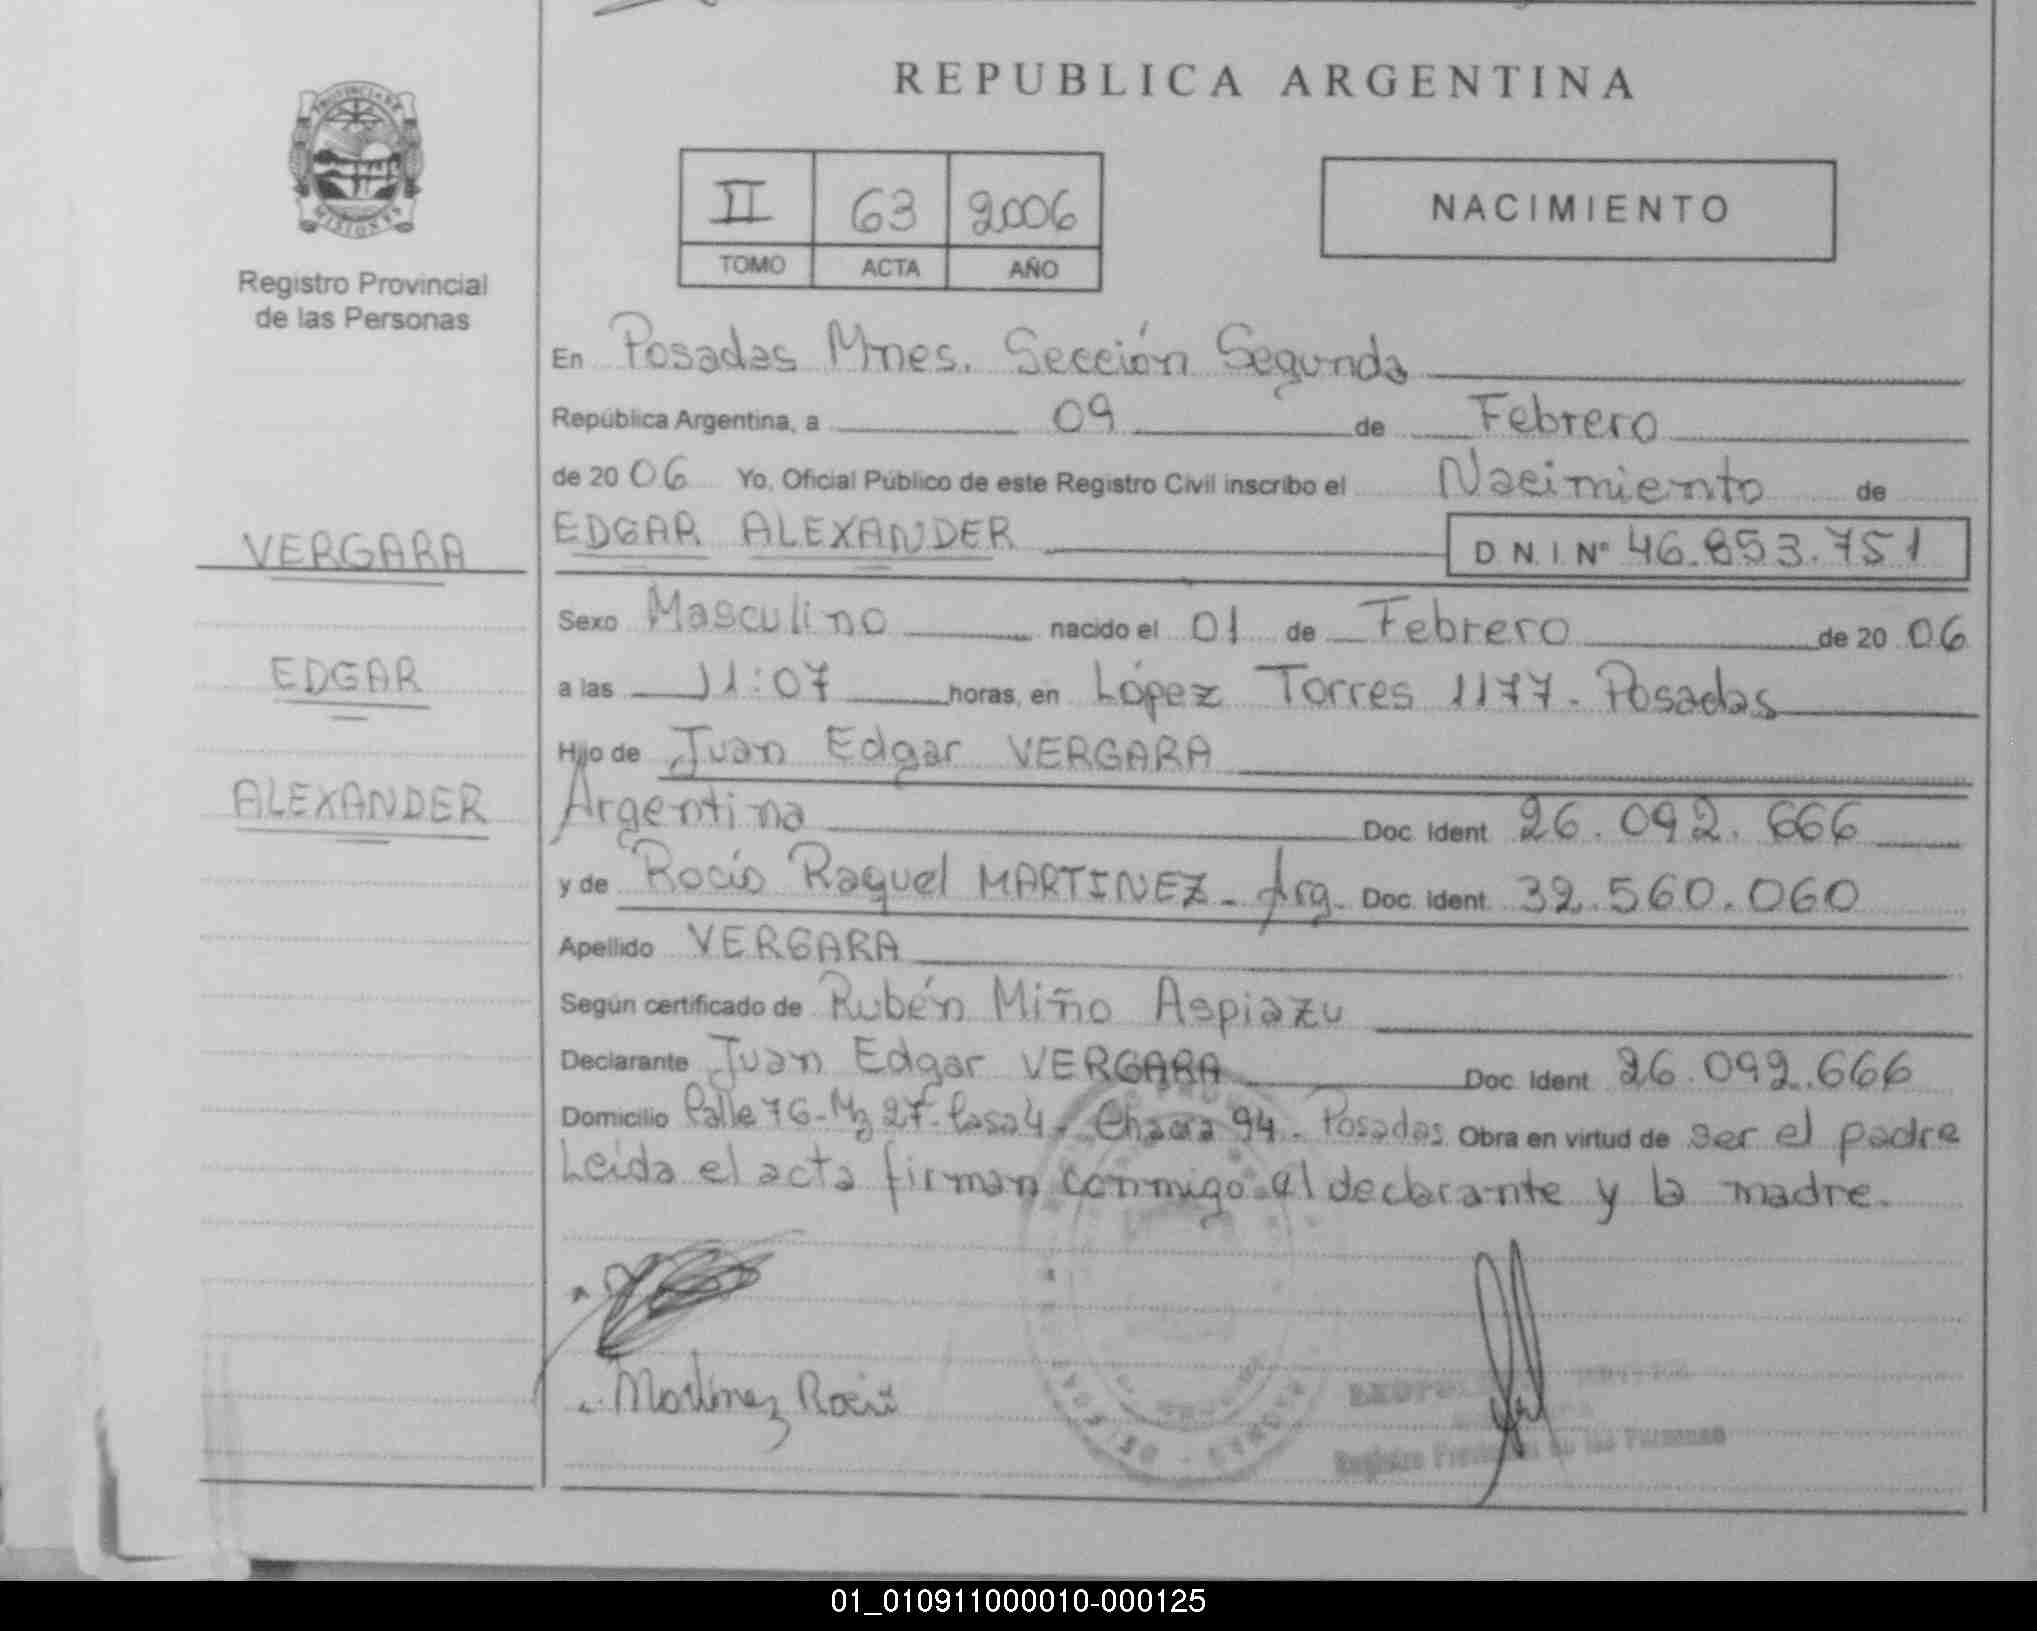 REPUBLICA ARGENTINA
PROVINCIA DE
MISIONES
Registro Provincial
de las Personas
II 63 2006
TOMO ACTA AÑO
NACIMIENTO
En Posadas Mnes. Sección Segunda
República Argentina, a 09 de Febrero
de 20 06 Yo, Oficial Público de este Registro Civil inscribo el Nacimiento de
EDGAR ALEXANDER D.N.I. Nº 46.853.751
VERGARA
EDGAR
ALEXANDER
Sexo Masculino nacido el 01 de Febrero de 20 06
a las 11:07 horas, en López Torres 1177 - Posadas
Hijo de Juan Edgar VERGARA
Argentina Doc. Ident. 26.092.666
y de Rocío Raquel MARTINEZ - Arg. Doc. Ident. 32.560.060
Apellido VERGARA
Según certificado de Rubén Miño Aspiazu
Declarante Juan Edgar VERGARA Doc. Ident. 26.092.666
Domicilio Calle 76 - Mz 27 - Casa 4 - Chacra 94 - Posadas Obra en virtud de ser el padre
Leída el acta firman conmigo el declarante y la madre.
Martinez Rocio
Registro Provincial de las Personas
01_010911000010-000125